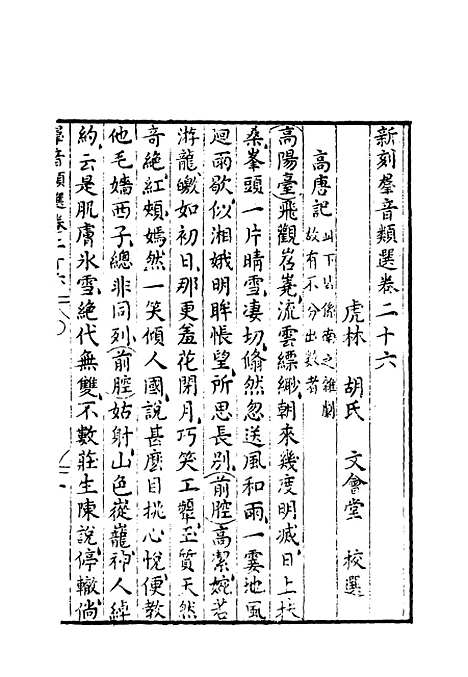 新刻羣音類選卷二十六
虎林 胡氏 文會堂 校選
高唐記 此下皆係南之雜劇
故有不分出數者
高陽臺 飛觀岧嶤流雲縹緲朝來幾度明滅日上扶
桑峯頭一片晴雪淒切翛然忽送風和雨一霎池風
迴雨歇似湘娥明眸悵望所思長別 前腔 高潔婉若
游龍皦如初日那更羞花閉月巧笑工顰玉質天然
奇絕紅頰嫣然一笑傾人國說甚麼目挑心悅便教
他毛嬙西子總非同列 前腔 姑射山色從巃神人綽
約云是肌膚氷雪絕代無雙不數莊生陳說停轍倘
羣音類選卷二十六